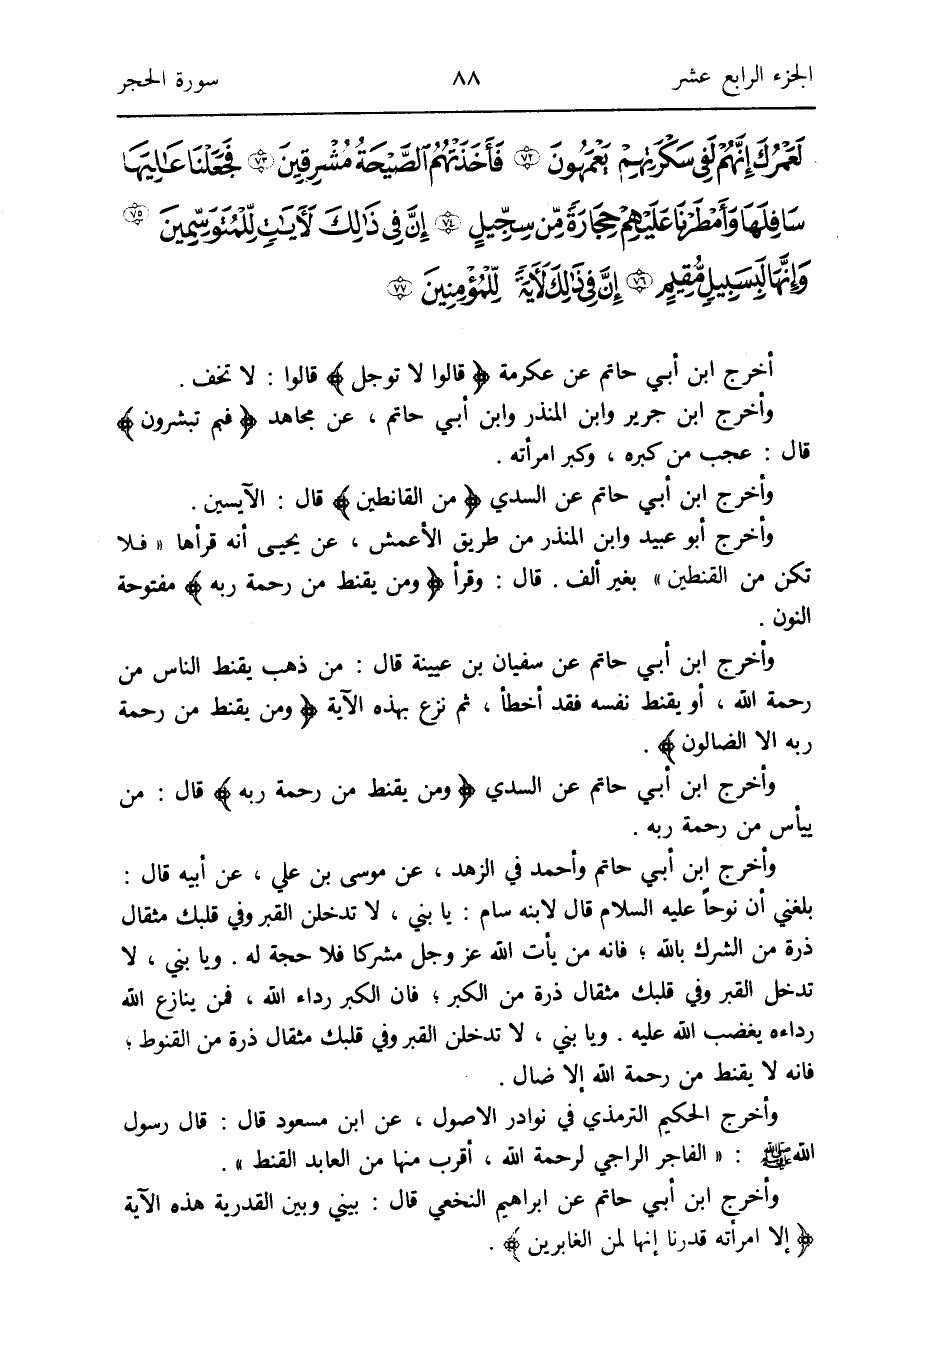 الجزء الرابع عشر ٨٨ سورة الحجر
لَعَمْرُكَ إِنَّهُمْ لَفِي سَكْرَتِهِمْ يَعْمَهُونَ ﴿٧٢﴾ فَأَخَذَتْهُمُ الصَّيْحَةُ مُشْرِقِينَ ﴿٧٣﴾ فَجَعَلْنَا عَالِيَهَا
سَافِلَهَا وَأَمْطَرْنَا عَلَيْهِمْ حِجَارَةً مِّن سِجِّيلٍ ﴿٧٤﴾ إِنَّ فِي ذَٰلِكَ لَآيَاتٍ لِّلْمُتَوَسِّمِينَ ﴿٧٥﴾
وَإِنَّهَا لَبِسَبِيلٍ مُّقِيمٍ ﴿٧٦﴾ إِنَّ فِي ذَٰلِكَ لَآيَةً لِّلْمُؤْمِنِينَ ﴿٧٧﴾
أخرج ابن أبي حاتم عن عكرمة ﴿ قالوا لا توجل ﴾ قالوا : لا تخف .
وأخرج ابن جرير وابن المنذر وابن أبي حاتم ، عن مجاهد ﴿ فبم تبشرون ﴾
قال : عجب من كبره ، وكبر امرأته .
وأخرج ابن أبي حاتم عن السدي ﴿ من القانطين ﴾ قال : الآيسين .
وأخرج أبو عبيد وابن المنذر من طريق الأعمش ، عن يحيى أنه قرأها « فلا
تكن من القنطين » بغير ألف . قال : وقرأ ﴿ ومن يقنط من رحمة ربه ﴾ مفتوحة
النون .
وأخرج ابن أبي حاتم عن سفيان بن عيينة قال : من ذهب يقنط الناس من
رحمة الله ، أو يقنط نفسه فقد أخطأ ، ثم نزع بهذه الآية ﴿ ومن يقنط من رحمة
ربه الا الضالون ﴾ .
وأخرج ابن أبي حاتم عن السدي ﴿ ومن يقنط من رحمة ربه ﴾ قال : من
ييأس من رحمة ربه .
وأخرج ابن أبي حاتم وأحمد في الزهد ، عن موسى بن علي ، عن أبيه قال :
بلغني أن نوحاً عليه السلام قال لابنه سام : يا بني ، لا تدخلن القبر وفي قلبك مثقال
ذرة من الشرك بالله ؛ فانه من يأت الله عز وجل مشركا فلا حجة له . ويا بني ، لا
تدخل القبر وفي قلبك مثقال ذرة من الكبر ؛ فان الكبر رداء الله ، فمن ينازع الله
رداءه يغضب الله عليه . ويا بني ، لا تدخلن القبر وفي قلبك مثقال ذرة من القنوط ؛
فانه لا يقنط من رحمة الله إلا ضال .
وأخرج الحكيم الترمذي في نوادر الاصول ، عن ابن مسعود قال : قال رسول
الله ﷺ : « الفاجر الراجي لرحمة الله ، أقرب منها من العابد القنط » .
وأخرج ابن أبي حاتم عن ابراهيم النخعي قال : بيني وبين القدرية هذه الآية
﴿ إلا امرأته قدرنا إنها لمن الغابرين ﴾ .